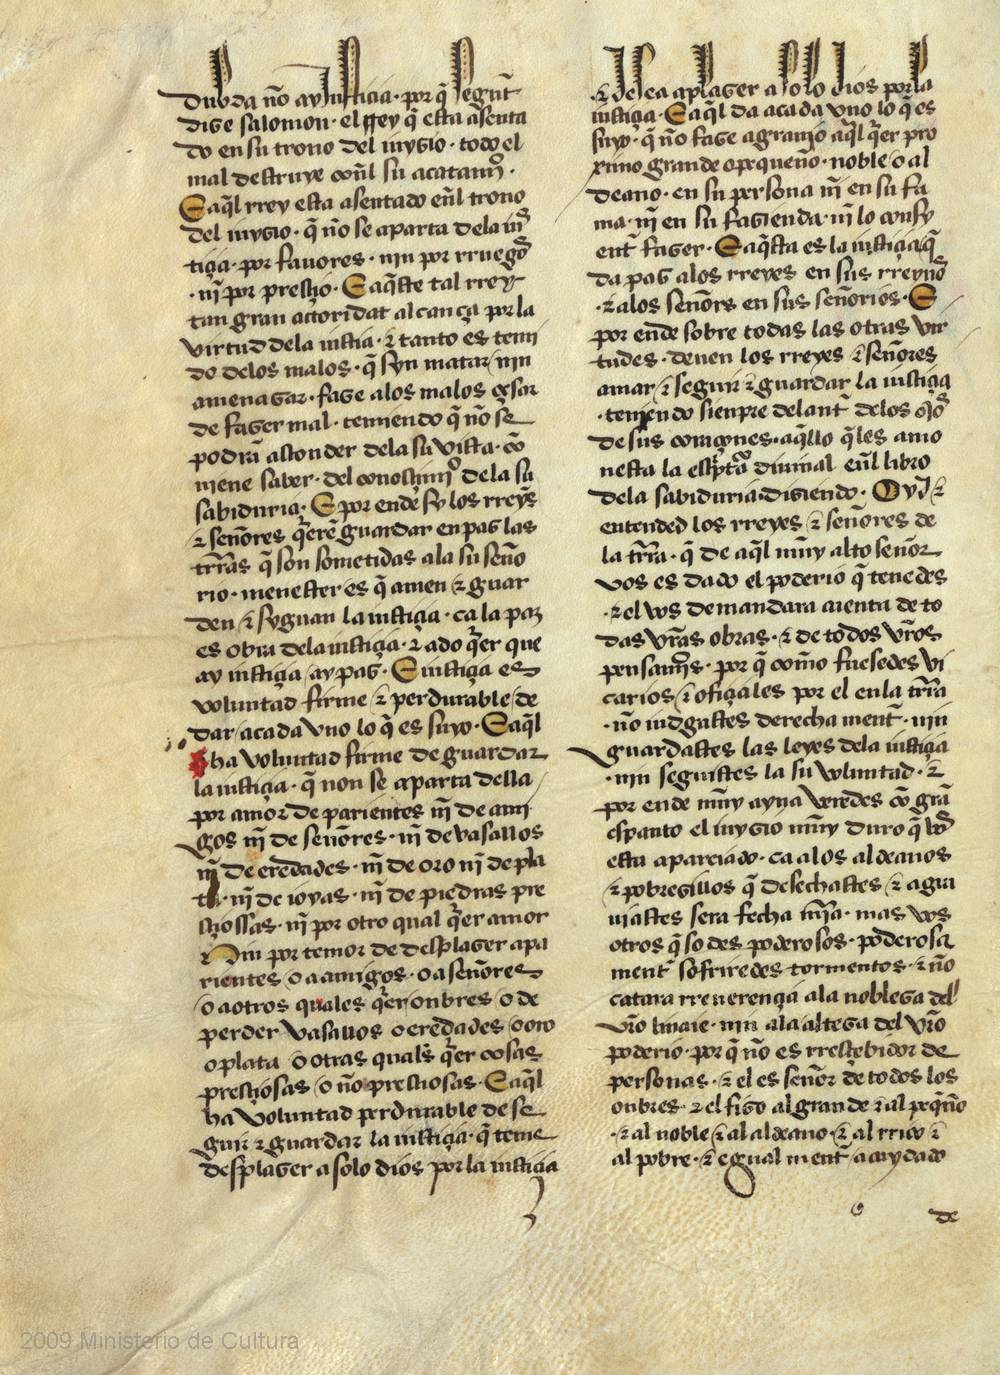 dubda nõ ay justiçia · por q̃ segunt
dize salomon · el rrey q̃ esta asenta
do en su trono del juyzio · todo el
mal destruye con̄l su acatamj̊ ·
E aq̄l rrey esta asentado en̄l trono
del juyzio · q̃ nõ se aparta dela jus
tiçia · por fauores · njn por rruegos
· nj̄ por presçio · E aq̄ste tal rrey
tan gran actoridat alcança por la
virtud dela justiçia · ⁊ tanto es temi
do delos malos · q̃ syn matar / njn
amenazar · faze alos malos çesar
de fazer mal · temiendo q̃ nõ se
podrā asconder dela su vista · cõ
viene saber · del conosçimj̊ dela su
sabiduria · E por ende sy los rreyes
⁊ señores q̃erē guardar en paz las
trr̄as q̃ son sometidas ala su seño
rio · menester es q̃ amen ⁊ guar
den ⁊ syguan la justiçia · ca la paz
es obra dela justiçia · ⁊ ado q̃er que
ay justiçia / ay paz · E justiçia es
voluntad firme ⁊ perdurable de
dar / acada vno lo q̃ es suyo · E aq̄l
ha voluntad firme de guardar
la justiçia · q̃ non se aparta della
por amor de parientes nj̄ de ami
gos nj̄ de señores · nj̄ de vasallos
nj̄ de eredades · nj̄ de oro nj̄ de pla
ta · nj̄ de joyas · nj̄ de piedras pre
sçiossas · nj̄ por otro qual q̃er amor
Nin por temor de desplazer apa
rientes / o a amigos · o a señores
o aotros quales q̃er onbres / o de
perder vasallos o eredades / o oro
o plata o otras quales q̃er cosas
presçiosas / o nõ presçiosas · E aq̄l
ha voluntad perdurable de se
guir ⁊ guardar la justiçia · q̃ teme
desplazer a solo dios por la justiçia
⁊ desea aplazer a solo dios por la
justiçia · E aq̄l da acada vno lo q̃ es
suyo · q̃ nõ faze agrauio aq̄l q̃er pro
ximo grande o pequeño · noble o al
deano · en su persona nj̄ en su fa
ma · nj̄ en su fazienda · nj̄ lo consy
ent̄ fazer · E aq̄sta es la justiçia q̃
da paz alos rreyes en sus rreynos
· ⁊ alos señores en sus señorios · E
por ende sobre todas las otras vir
tudes · deuen los rreyes ⁊ señores
amar / ⁊ seguir ⁊ guardar la justiçia
· teniendo sienpre delant̄ delos ojos
de sus coraçones · aq̄llo q̃ les amo
nesta la escp̃tã diuinal en̄l libro
dela sabiduria · diziendo · Oyd ⁊
entended los rreyes ⁊ señores de
la trr̄a · q̃ de aq̄l muy alto señor
vos es dado el poderio q̃ tenedes
· ⁊ el vos demandara cuenta de to
das vr̄as obras · ⁊ de todos vr̄os
pensamj̊s · por q̃ como fuesedes vi
carios / ⁊ ofiçiales por el enla trr̄a
· nõ judgastes derecha ment̄ · njn
guardastes las leyes dela justiçia
· njn seguistes la su voluntad · ⁊
por ende muy ayna veredes cõ grā
espanto el juyzio muy duro q̃ vos
esta aparejado · ca alos aldeanos
⁊ pobrezillos q̃ desechastes ⁊ agra
uiastes sera fecha mj̄a · mas vos
otros q̃ sodes poderosos · poderosa
ment̄ sofriredes tormentos · ⁊ nõ
catara rreuerençia ala nobleza del
vr̄o linaje · njn ala alteza del vr̄o
poderio · por q̃ nõ es rresçebidor de
personas · ⁊ el es señor de todos los
onbres · ⁊ el fizo al grande ⁊ al peq̃ño
· ⁊ al noble / ⁊ al aldeano · ⁊ al rrico ⁊
al pobre · ⁊ egual ment̄ a cuydado
de
2009 Ministerio de Cultura